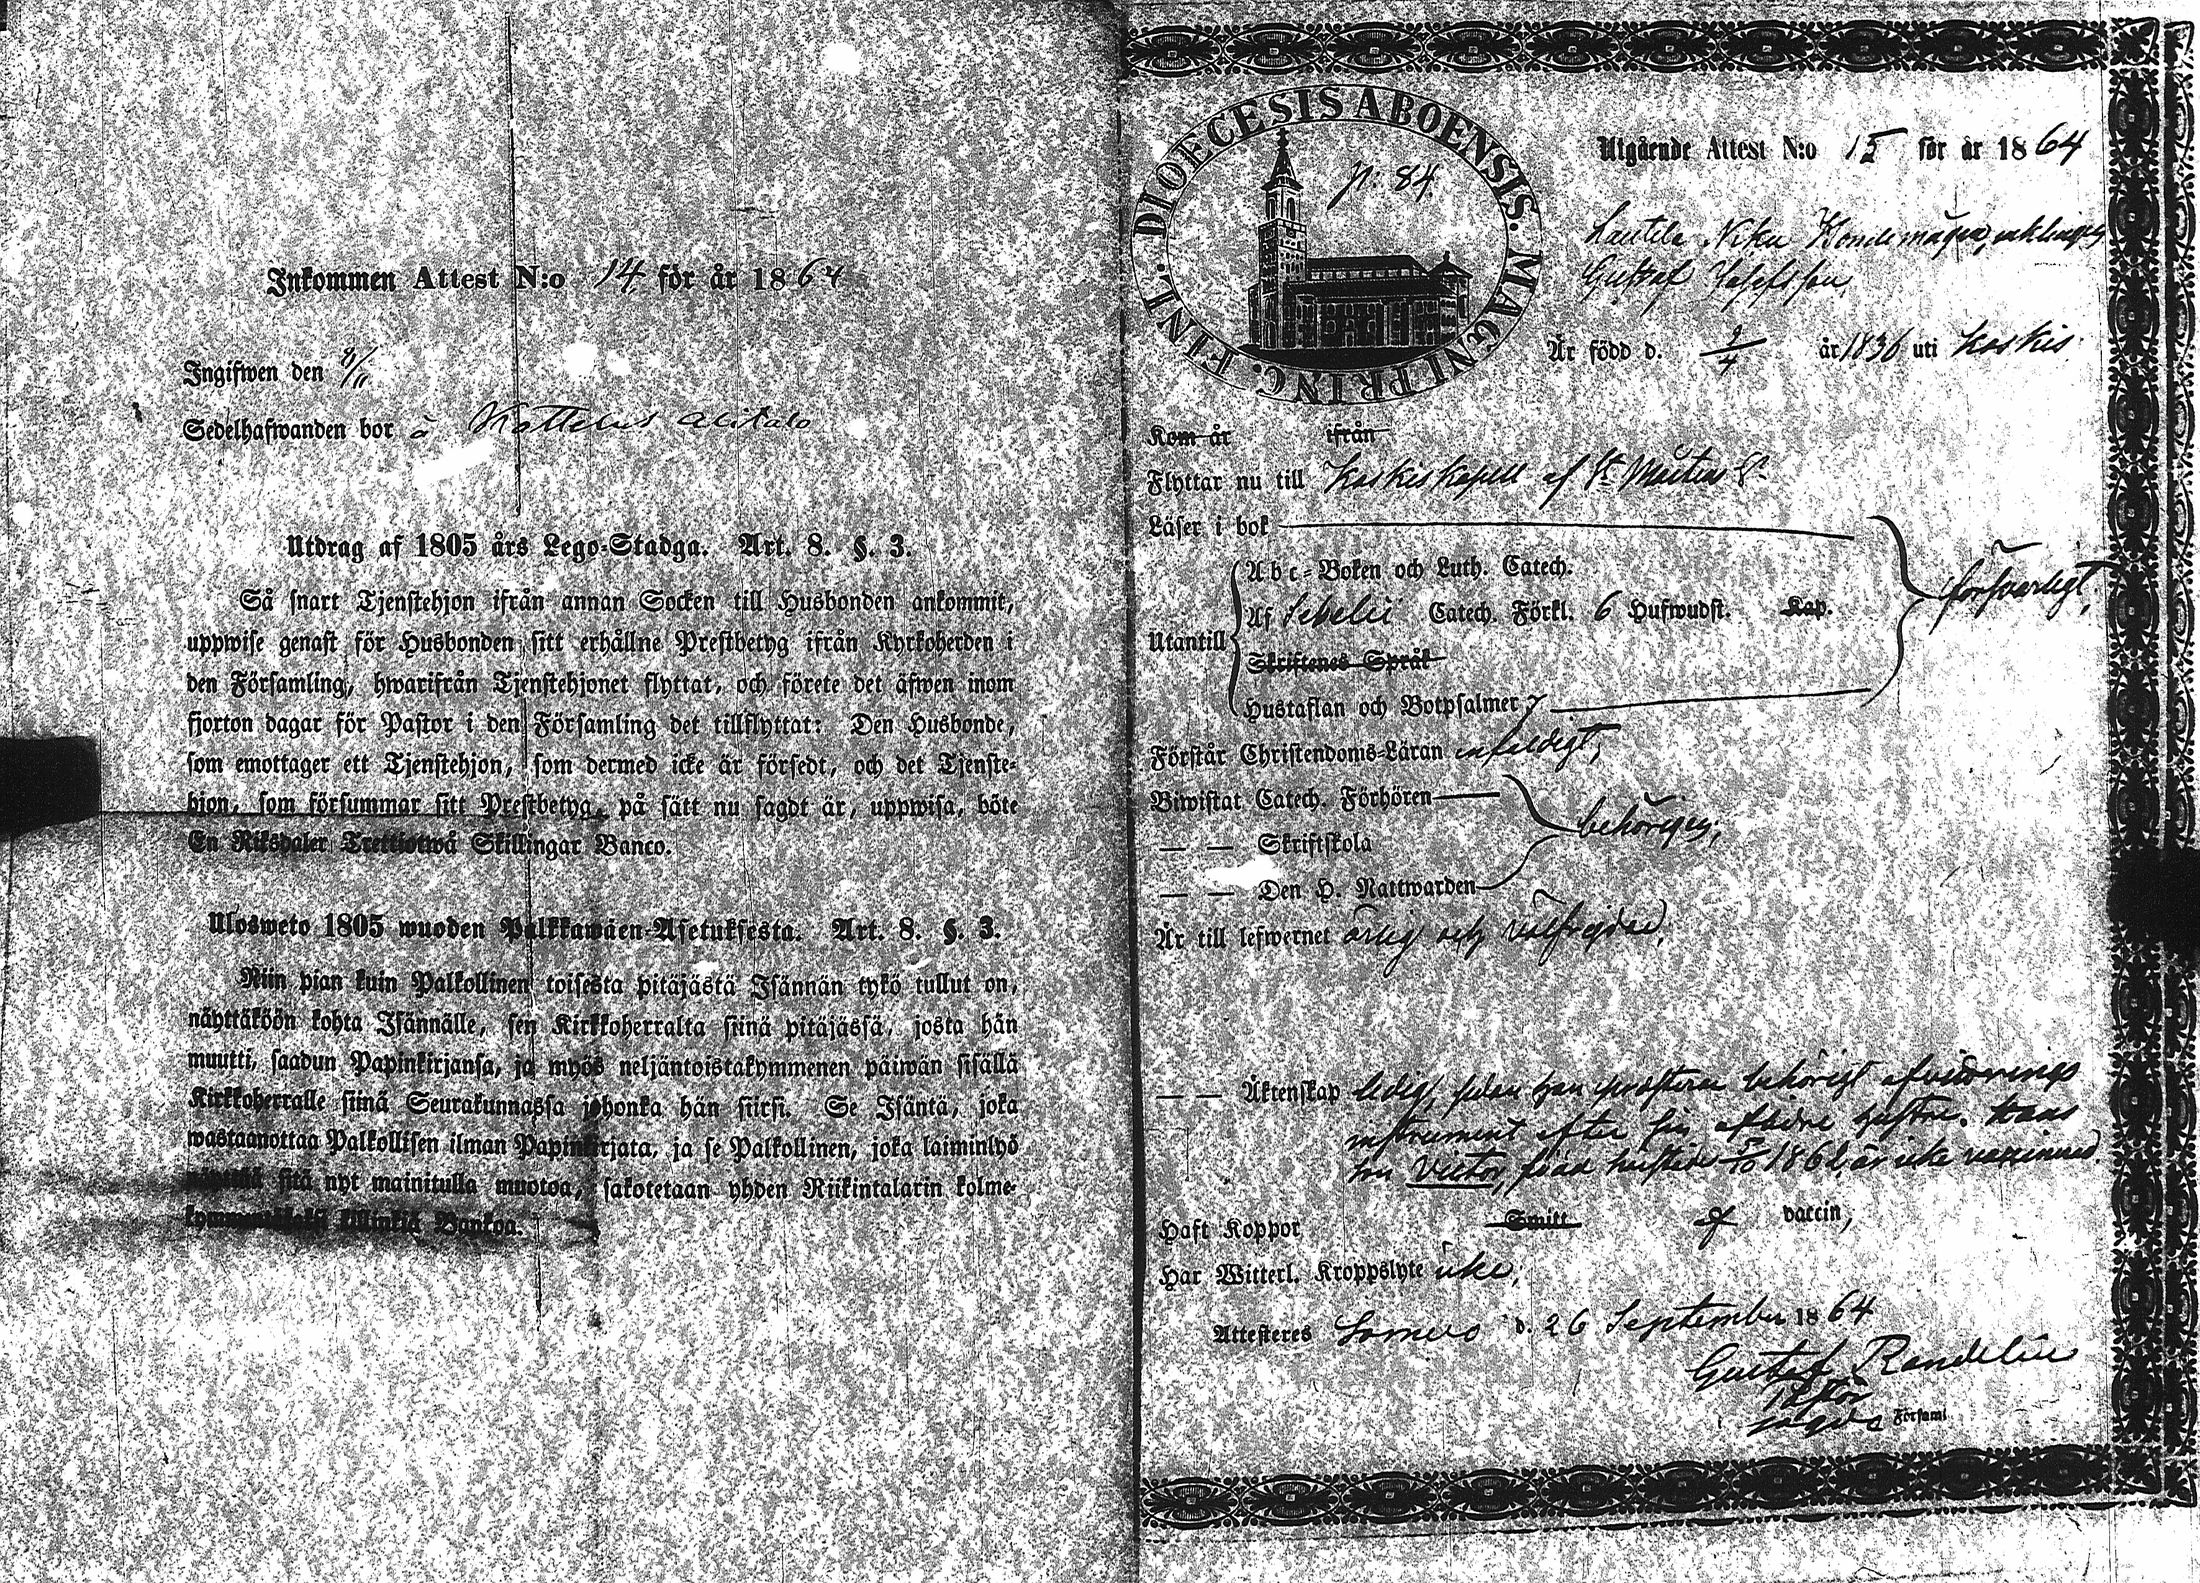 Inkommen Attest N:o 14 för år 1864
Ingifwen den 8/11
Sedelhafwanden bor å Kattelus Alitalo
Utdrag af 1805 års Lego-Stadga. Art. 8. §. 3.
Så snart Tjenstehjon ifrån annan Socken till Husbonden ankommit,
uppwise genast för Husbonden sitt erhållne Prestbetyg ifrån Kyrkoherden i
den Församling, hwarifrån Tjenstehjonet flyttat, och förete det äfwen inom
fjorton dagar för Pastor i den Församling det tillflyttat: Den Husbonde,
som emottager ett Tjenstehjon, som dermed icke är försedt, och det Tjenste-
hjon, som försummar sitt Prestbetyg, på sätt nu sagdt är, uppwisa, böte
En Riksdaler Trettiotwå Skillingar Banco.
Ulosweto 1805 wuoden Palkkawäen-Asetuksesta. Art. 8. §. 3.
Niin pian kuin Palkollinen toisesta pitäjästä Isännän tykö tullut on,
näyttäköön kohta Isännälle, sen Kirkkoherralta siinä pitäjässä, josta hän
muutti, saadun Papinkirjansa, ja myös neljäntoistakymmenen päiwän sisällä
Kirkkoherralle siinä Seurakunnassa johonka hän siirsi. Se Isäntä, joka
wastaanottaa Palkollisen ilman Papinkirjata, ja se Palkollinen, joka laiminlyö
näyttää sitä nyt mainitulla muotoa, sakotetaan yhden Riikintalarin kolme-
killinkiä Bankoa.
DIOECESIS ABOENSIS. MAGNI PRINC. FINL.
N: 84.
Utgående Attest N:o 15 för år 1864
Lautela Niku Bondemågen, enklingen
Gustaf Josefsson
Är född d. 2/4 år 1836 uti Koskis
Kom år ifrån
Flyttar nu till Koskis kapell af St Mårtens
Läser i bok
Abc-Boken och Luth. Catech.
Utantill Af Sebelii Catech. Förkl. 6 Hufwudst. Kap. försvarligt,
Skriftenes Språk
Hustaflan och Botpsalmer 7
Förstår Christendoms-Läran enfaldigt,
Biwistat Catech. Förhören
— — Skriftskola behörigen,
— — Den H. Nattwarden
Är till lefwernet ärlig och välfrejdad,
— — Äktenskap ledig, sedan han behörigt afvittrings
instrument efter sin aflidne hustru. Hans
son Victor, född 1862, är icke vaccinerad.
Haft Koppor Smitt af vaccin,
Har Witterl. Kroppslyte icke,
Attesteres Somero d. 26 September 1864
Gustaf Randelin
Pastor
i Församl